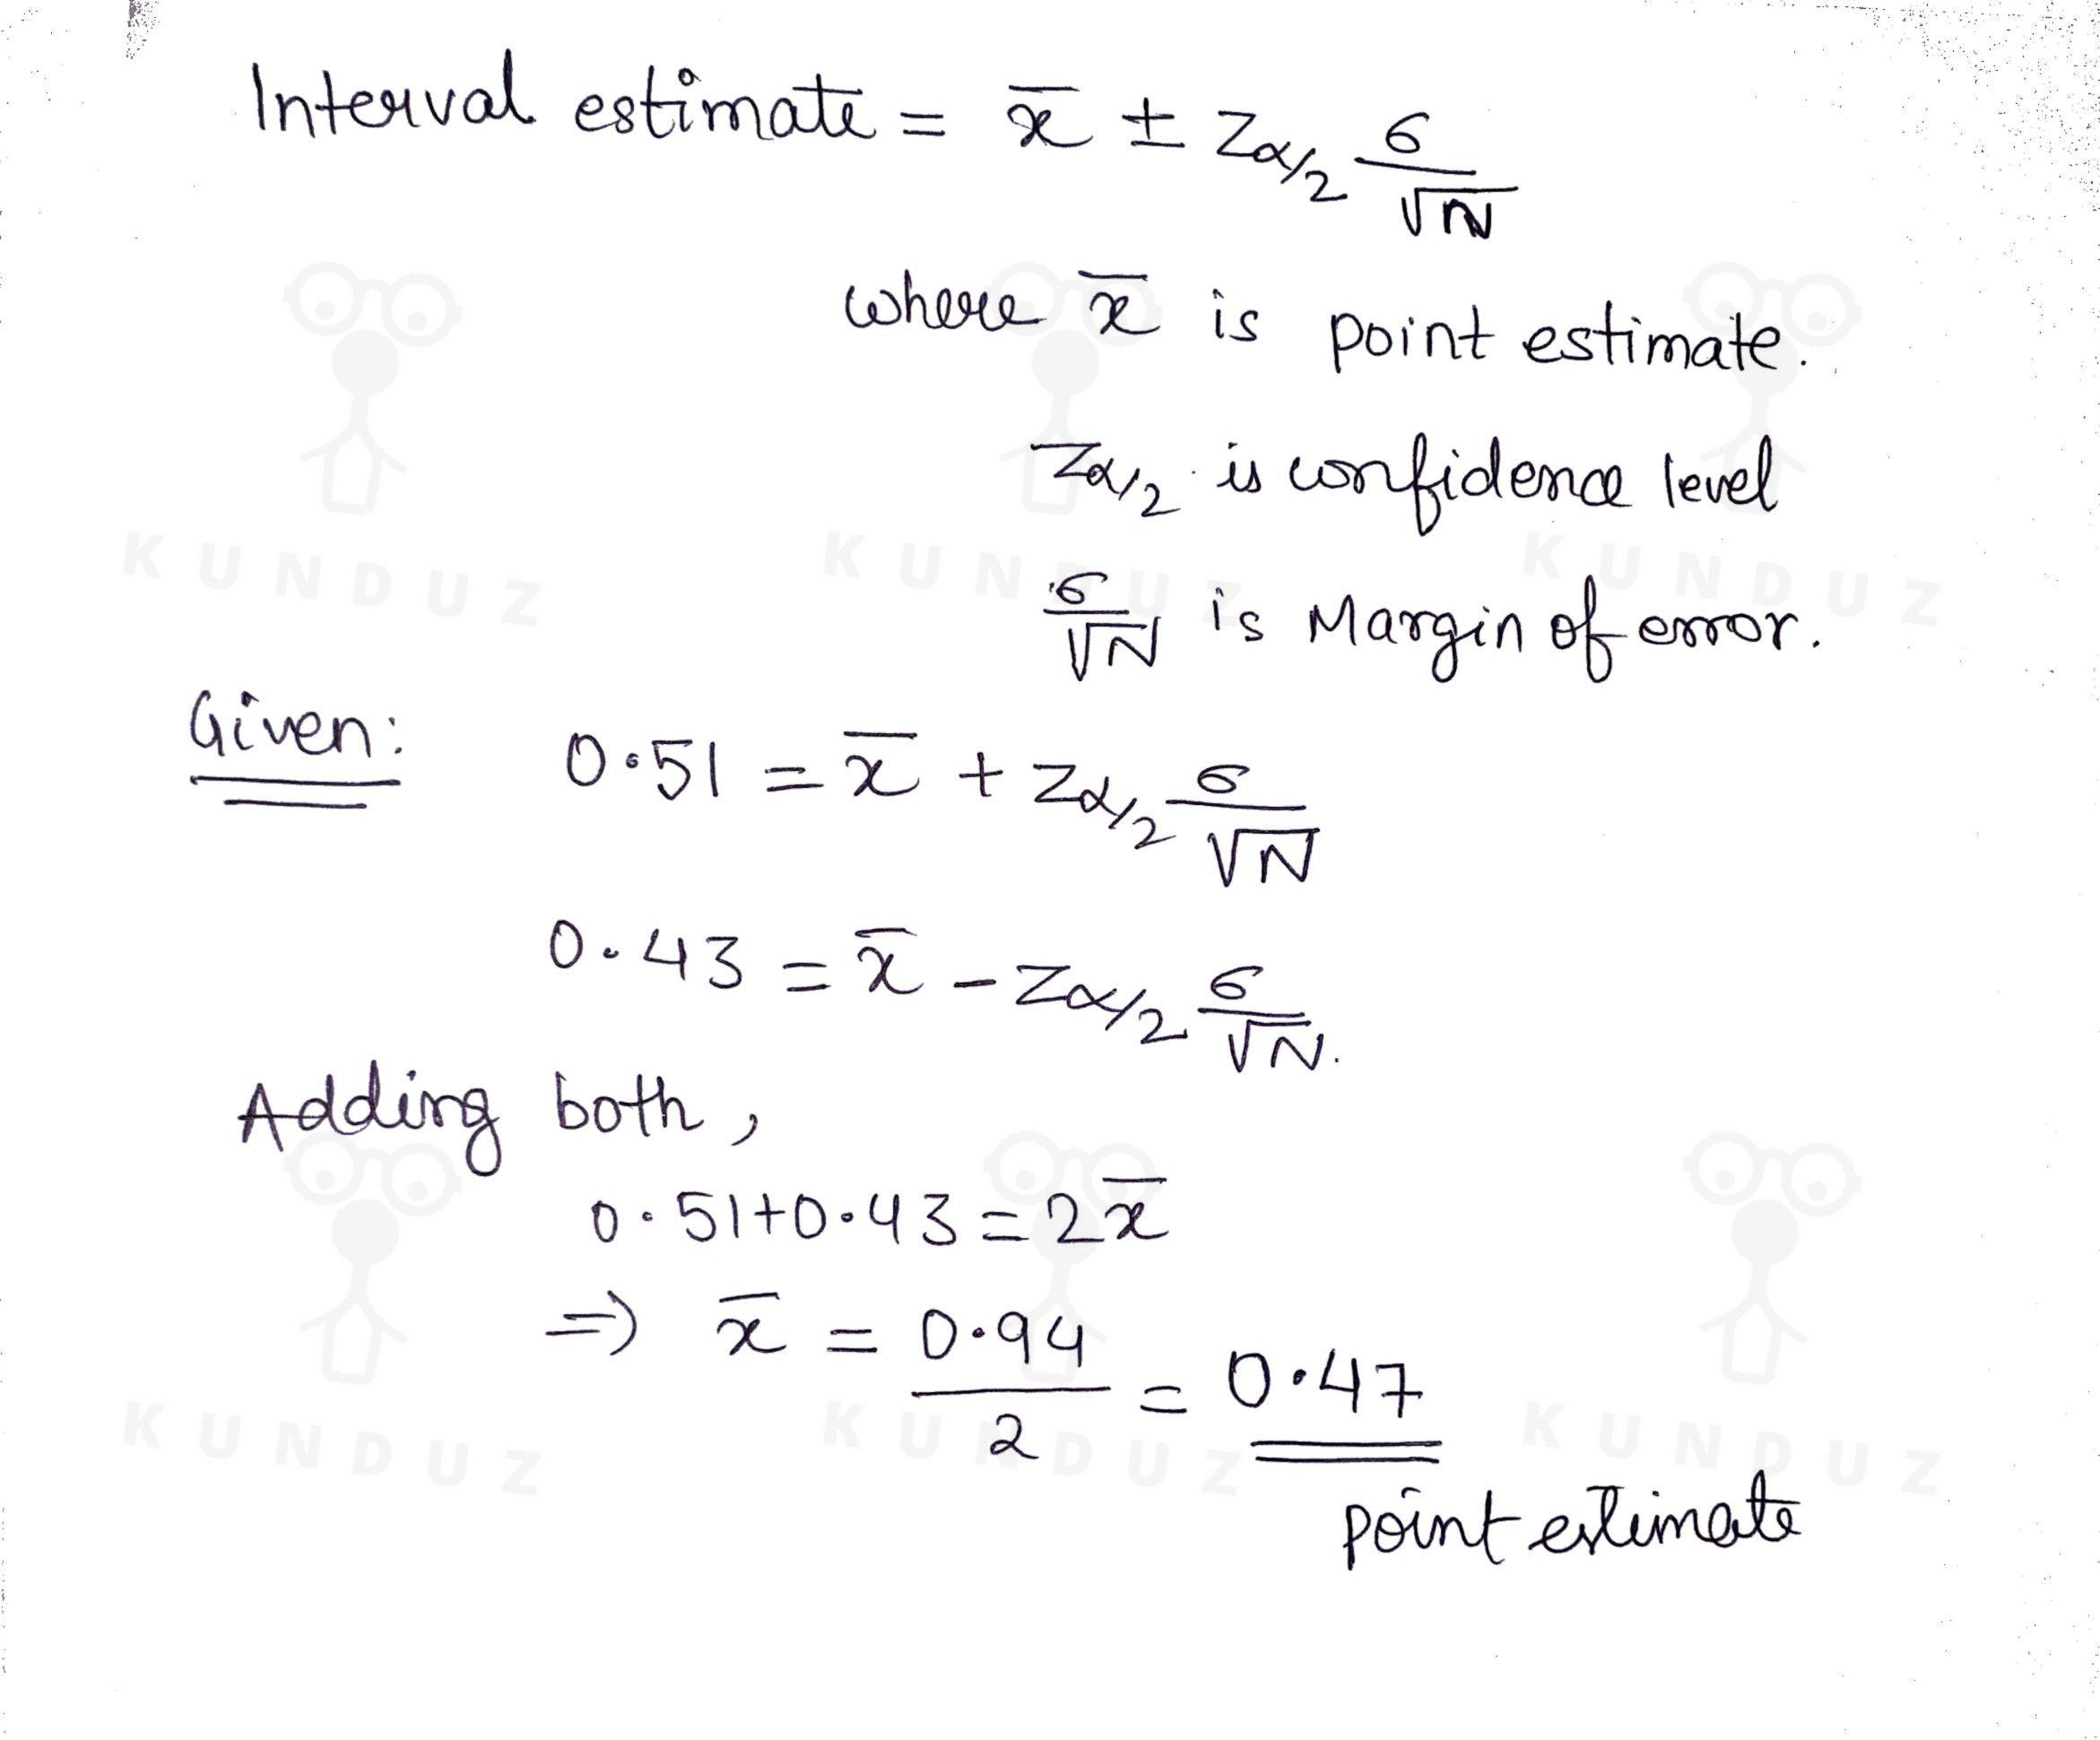 Interval estimate = x̄ ± Zα/2 σ/√N
where x̄ is point estimate.
Zα/2 is confidence level
σ/√N is Margin of error.
Given: 0.51 = x̄ + Zα/2 σ/√N
0.43 = x̄ - Zα/2 σ/√N.
Adding both,
0.51+0.43 = 2x̄
=) x̄ = 0.94/2 = 0.47
point estimate
KUNDUZ KUNDUZ KUNDUZ
KUNDUZ KUNDUZ KUNDUZ